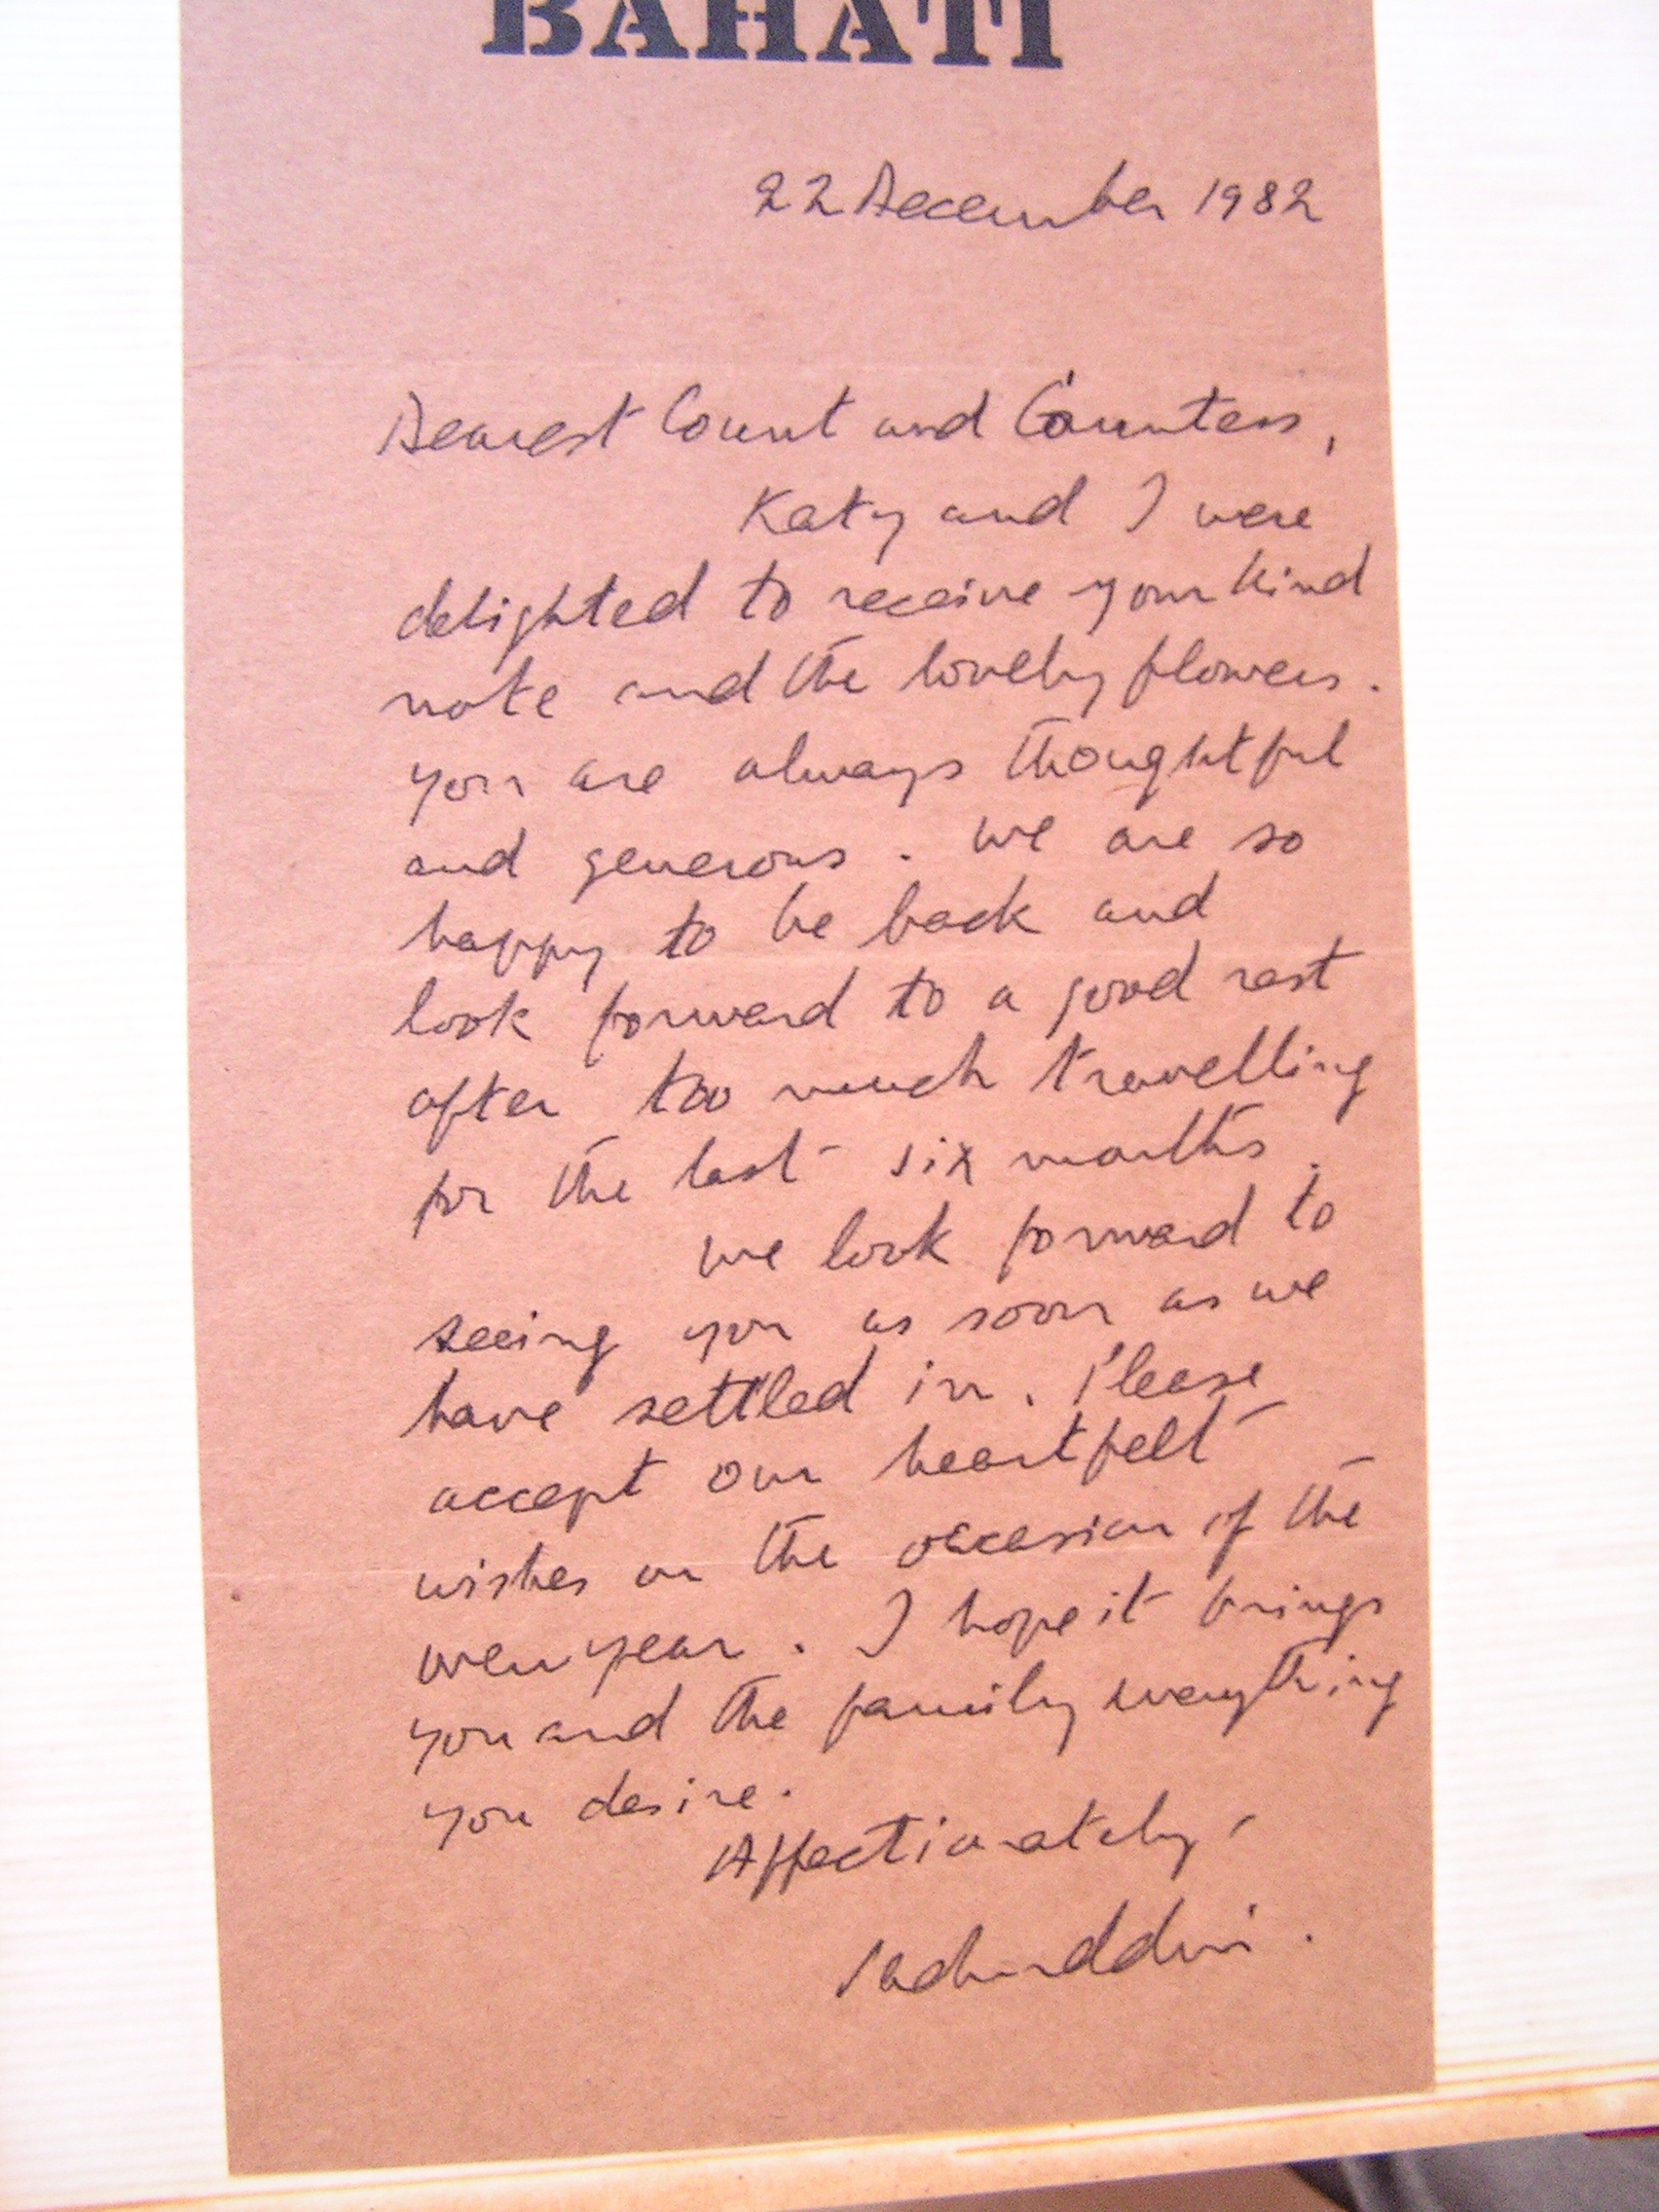 BAHATI
22 December 1982
Dearest Count and Countess,
Katy and I were
delighted to receive your kind
note and the lovely flowers.
you are always thoughtful
and generous. we are so
happy to be back and
look forward to a good rest
after too much travelling
for the last six months.
we look forward to
seeing you as soon as we
have settled in. Please
accept our heartfelt
wishes on the occasion of the
new year. I hope it brings
you and the family everything
you desire.
Affectionately,
Sadruddin.